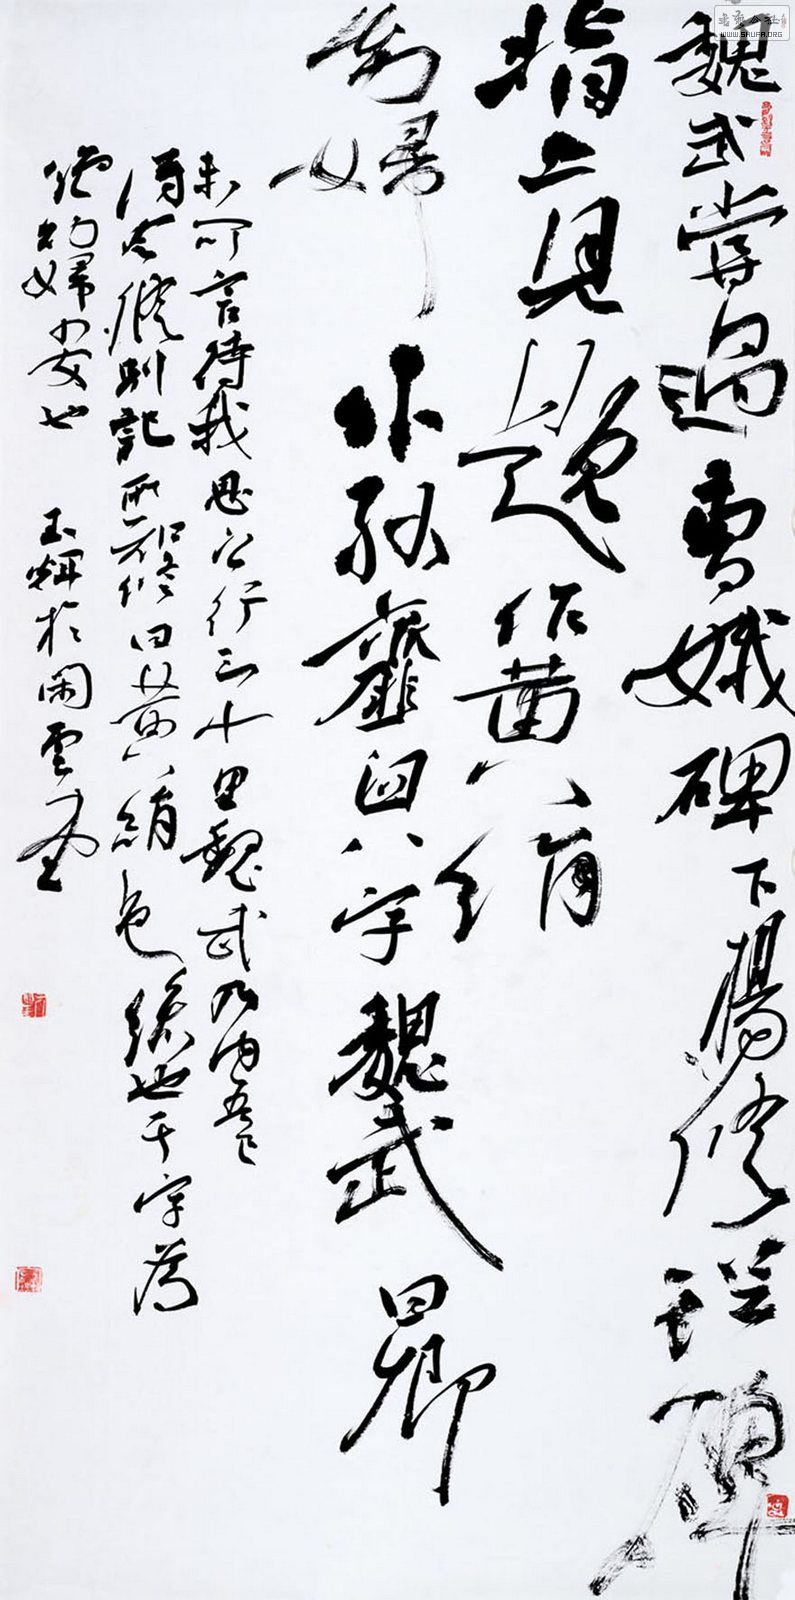 魏武嘗過曹娥碑下楊修從碑
背上見題作黃絹
幼婦外孫齏臼八字魏武曰卿
未可言待我思之行三十里魏武乃曰吾已
得令修別記所知修曰黃絹色絲也于字為
絕幼婦少女也 玉輝於閑雲
www.SHUFA.ORG